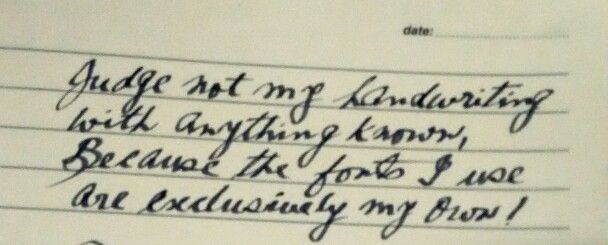 date:
Judge not my handwriting
with anything known,
Because the fonts I use
are exclusively my own!